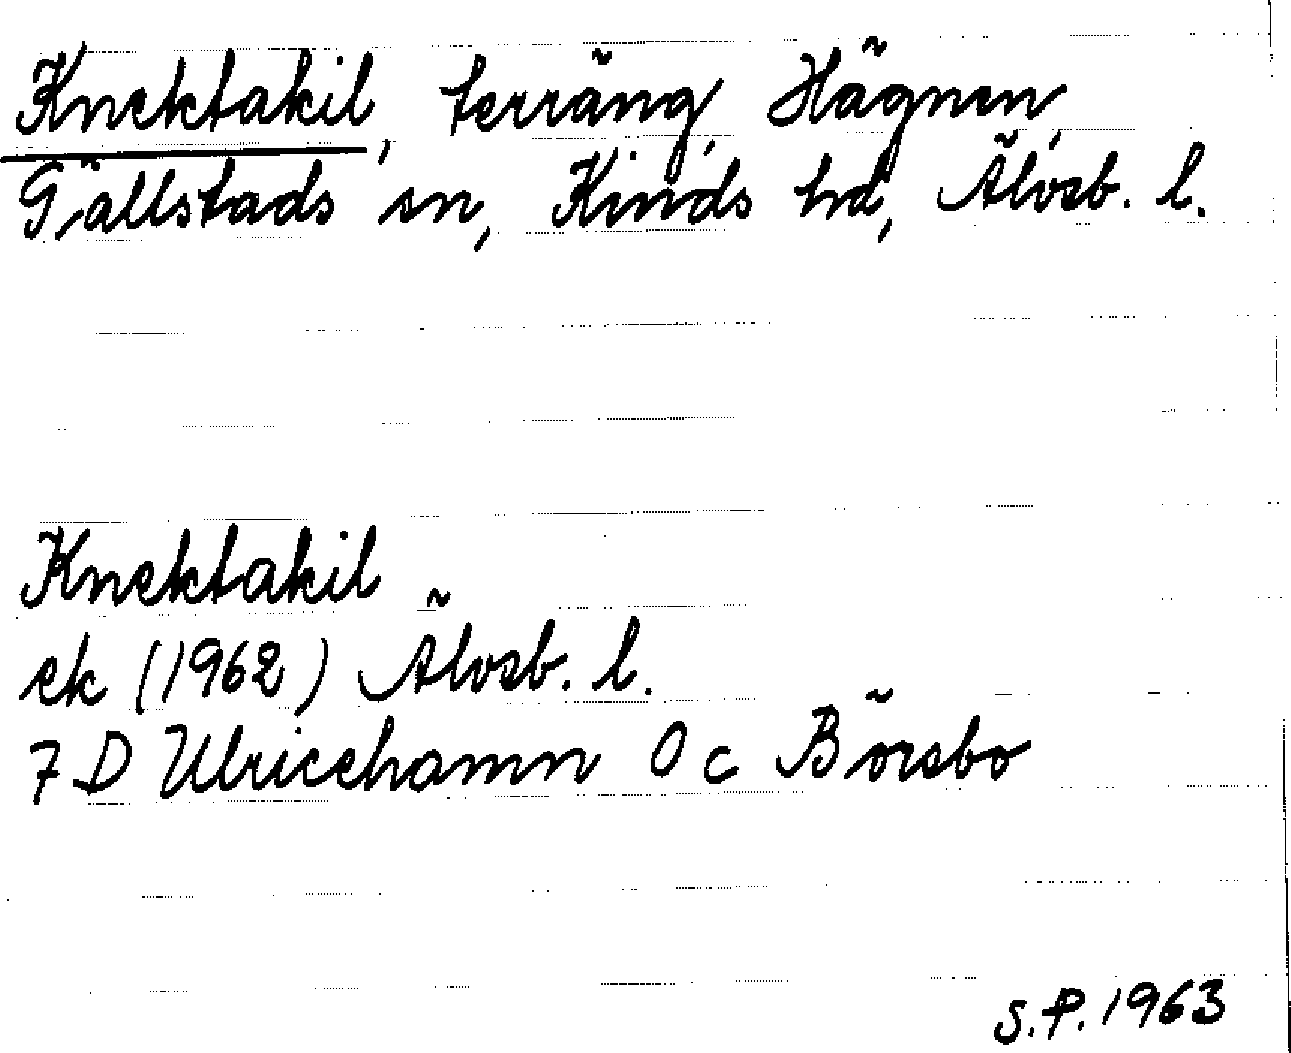 Knektakil, terräng, Hägnen,
Gällstads sn, Kinds hd, Älvsb. l.
Knektakil
ek (1962) Älvsb. l.
7 D Ulricehamn 0 c Börsbo
S.P. 1963